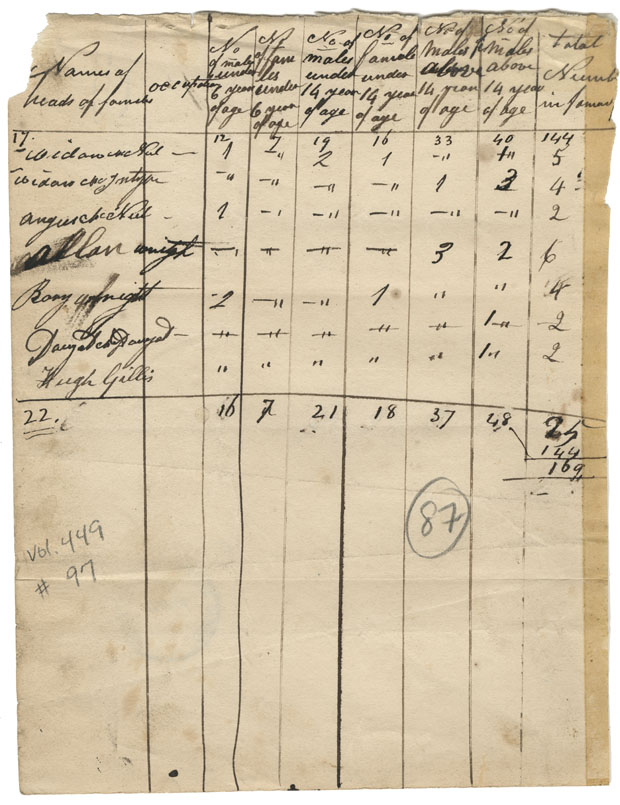 Names of heads of famels | occupation | No of males under 6 year of age | No of fam les under 6 year of age | No of males under 14 year of age | No of famale under 14 year of age | No of males above 14 year of age | No of males above 14 year of age | total Numb in famely
17. | 12 | 7 | 19 | 16 | 33 | 40 | 144
widow McNeil — | 1 | " | 2 | 1 | —" | " | 5
widow McIntyre | —" | —" | —" | —" | 1 | 3 | 4
Angus McNeil — | 1 | —" | —" | —" | —" | —" | 2
Allan wright | —" | —" | —" | —" | 3 | 2 | 6
Rory wright | 2 | —" | —" | 1 | " | " | 4
—" | —" | —" | —" | —" | 1" | 2
Hugh Gillis | " | " | " | " | " | 1" | 2
22. | 16 | 7 | 21 | 18 | 37 | 48 | 25
144
169
87
Vol. 449
# 97